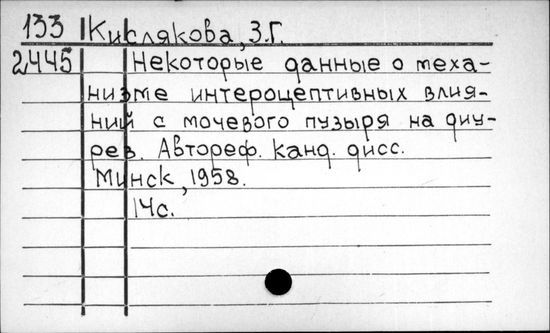 133 Кислякова, З.Г.
2445 Некоторые данные о меха-
низме интероцептивных влия-
ний с мочевого пузыря на диу-
рез. Автореф. канд. дисс.
Минск, 1958.
14с.